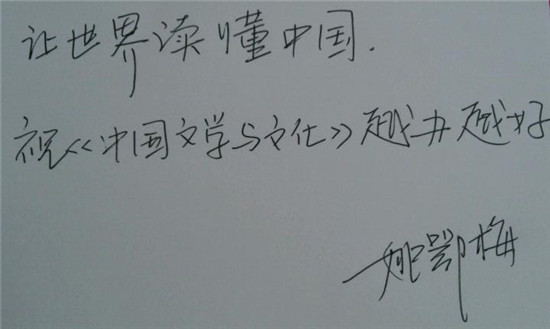 让世界读懂中国.
祝《中国文学与文化》越办越好
姚鄂梅